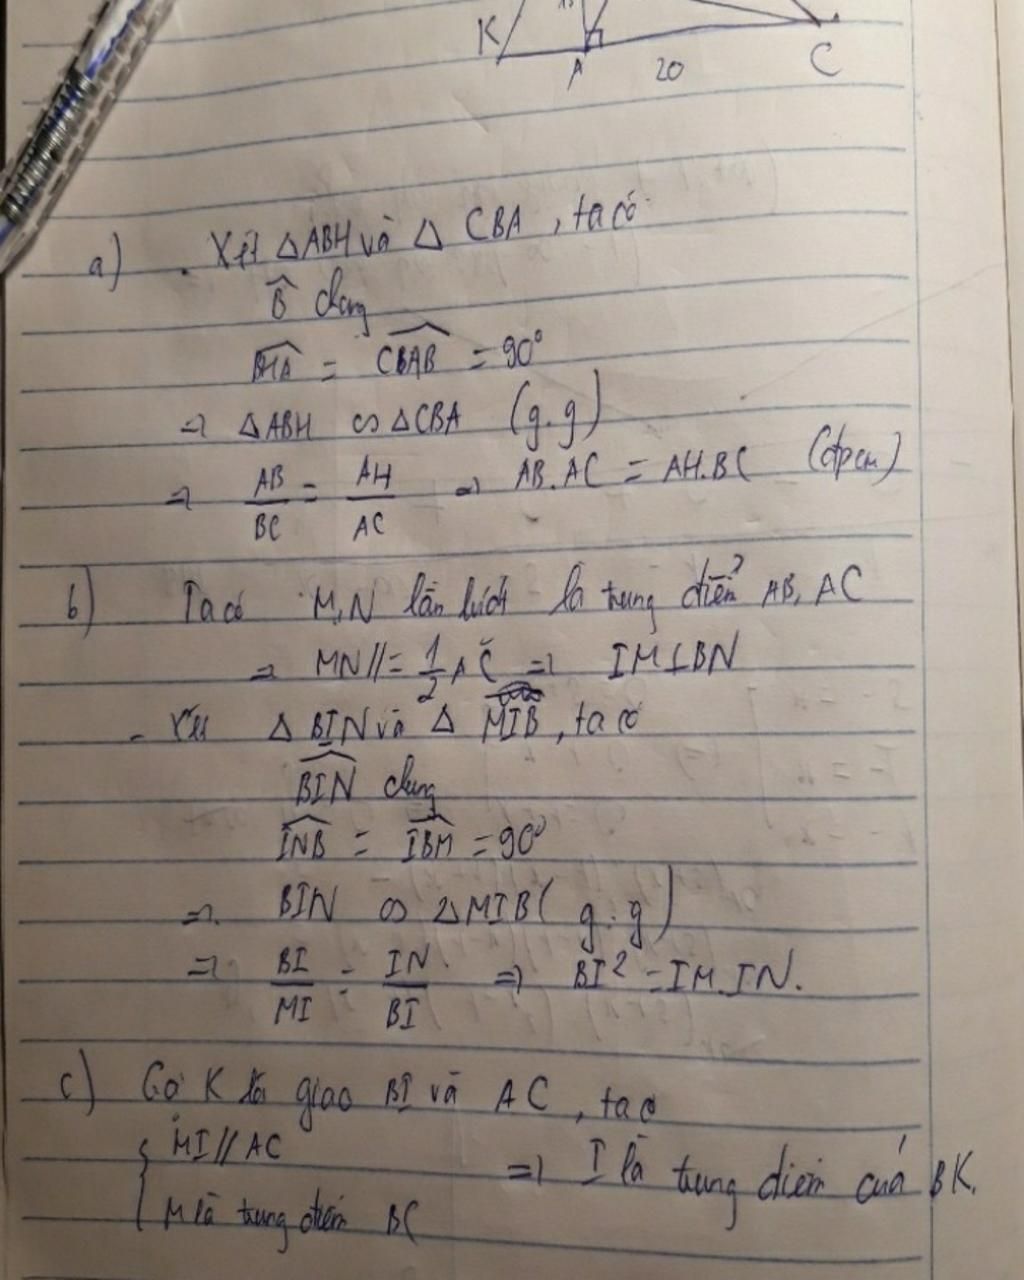 K
A
20
C
a) . Xét △ABH và △ CBA , ta có
B̂ chung
BHA = CBAB = 90°
⇒ △ABH ∽ △CBA (g.g)
⇒ AB/BC = AH/AC ⇒ AB.AC = AH.BC (đpcm)
b) Ta có M,N lần lượt là trung điểm AB, AC
⇒ MN//= 1/2 AC ⇒ IM⊥BN
- Xét △ BIN và △ MIB , ta có
BIN chung
INB = IBM = 90°
⇒ BIN ∽ △MIB ( g.g)
⇒ BI/MI = IN/BI ⇒ BI² = IM.IN.
c) Gọi K là giao BI và AC , ta có
{ MI // AC
M là trung điểm BC ⇒ I là trung điểm của BK.